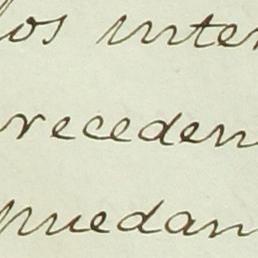 los inter
receden
puedan